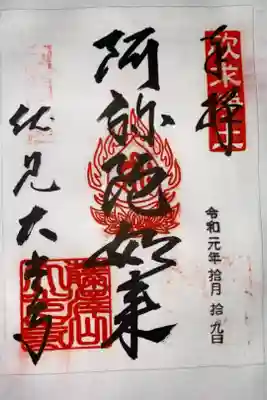 奉拝
欣求浄土
令和元年拾月拾九日
阿弥陀如来
伏見大光寺